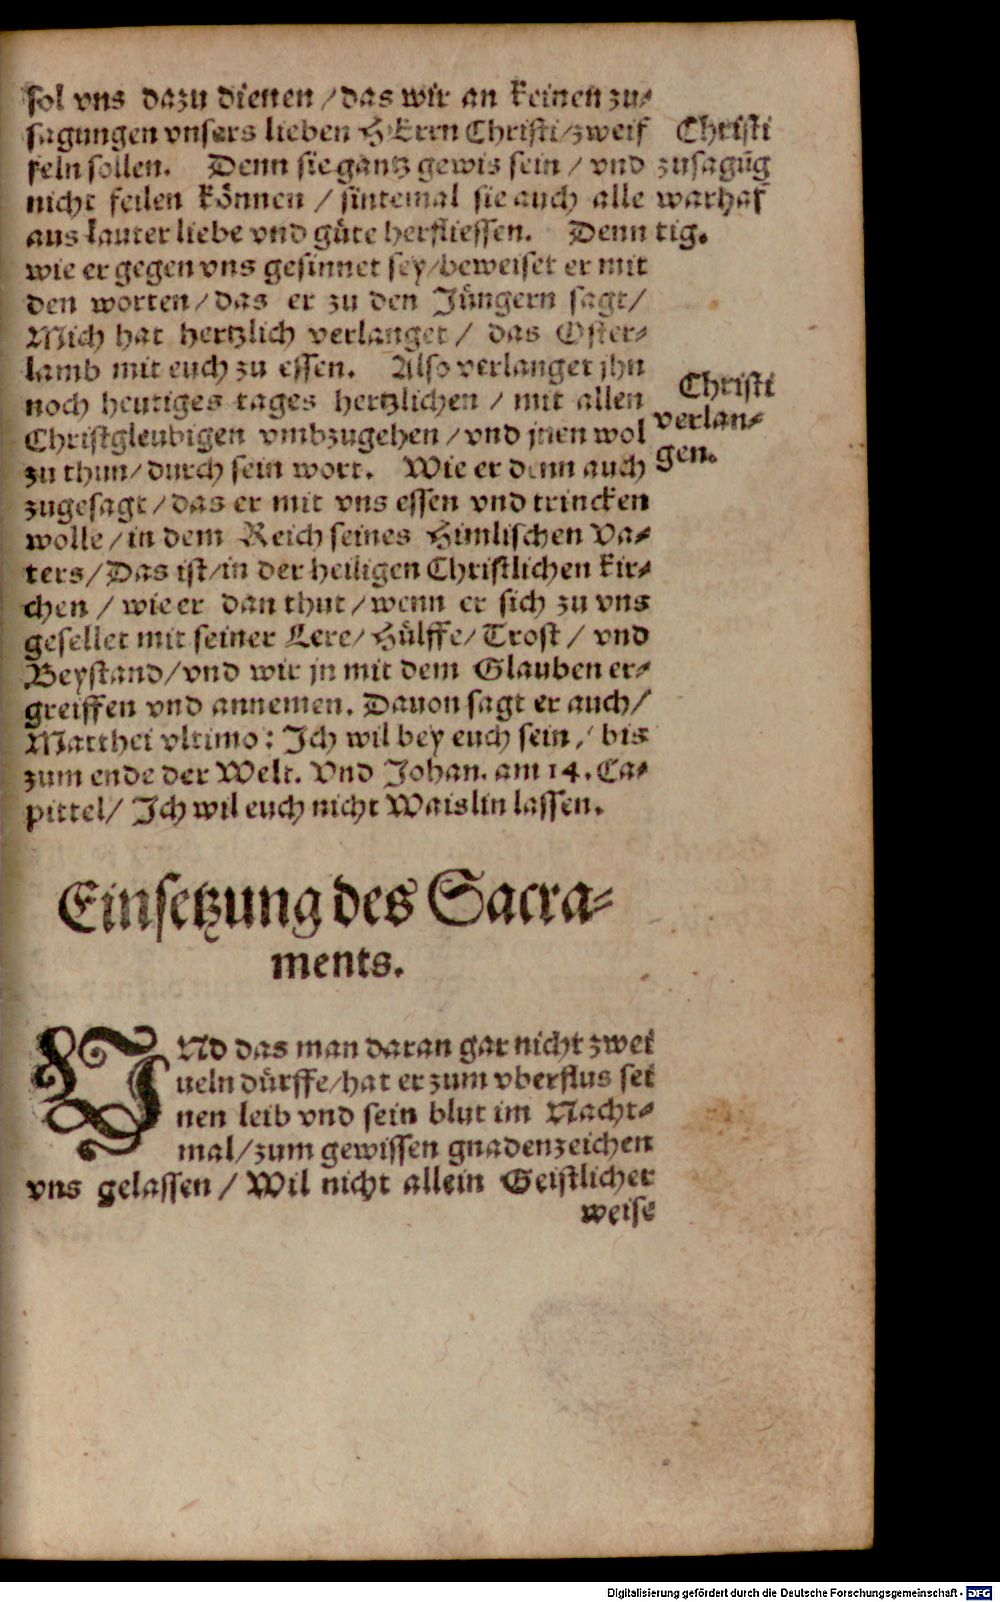 sol vns dazu dienen / das wir an keinen zu⸗
sagungen vnsers lieben HErrn Christi / zweif
feln sollen. Denn sie gantz gewis sein / vnd
nicht feilen können / sintemal sie auch alle
aus lauter liebe vnd güte herfliessen. Denn
wie er gegen vns gesinnet sey / beweiset er mit
den worten / das er zu den Jüngern sagt /
Mich hat hertzlich verlanget / das Oster⸗
lamb mit euch zu essen. Also verlanget jhn
noch heutiges tages hertzlichen / mit allen
Christgleubigen vmbzugehen / vnd jnen wol
zu thun / durch sein wort. Wie er denn auch
zugesagt / das er mit vns essen vnd trincken
wolle / in dem Reich seines Himlischen Va⸗
ters / Das ist / in der heiligen Christlichen Kir⸗
chen / wie er dan thut / wenn er sich zu vns
gesellet mit seiner Lere / Hülffe / Trost / vnd
Beystand / vnd wir jn mit dem Glauben er⸗
greiffen vnd annemen. Dauon sagt er auch /
Matthei vltimo : Ich wil bey euch sein / bis
zum ende der Welt. Vnd Johan. am 14. Ca⸗
pittel / Ich wil euch nicht Waislin lassen.
Christi
zusagūg
warhaf
tig.
Christi
verlan⸗
gen.
Einsetzung des Sacra⸗
ments.
VNd das man daran gar nicht zwei
ueln dürffe / hat er zum vberflus sei
nen leib vnd sein blut im Nacht⸗
mal / zum gewissen gnadenzeichen
vns gelassen / Wil nicht allein Geistlicher
weise
Digitalisierung gefördert durch die Deutsche Forschungsgemeinschaft - DFG